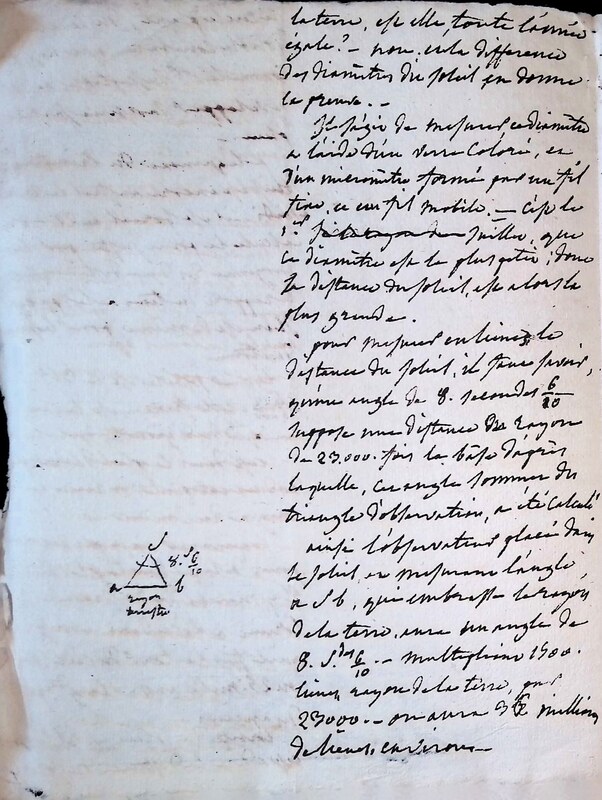 la terre, est elle toute l'année
égale? - non. et la difference
des diamètres du soleil en donne
la preuve. -
Il s'agit de mesurer ce diamètre
a l'aide d'un verre coloré, et
d'un micromètre formé par un fil
fixe, et un fil mobile. - C'est le
1er juillet, que
ce diamètre est le plus petit; donc
la distance du soleil, est alors la
plus grande.
pour mesurer en lieues le
distance du soleil, il faut savoir,
qu'un angle de 8. secondes 6/10
suppose une distance du rayon
de 23.000. fois la base d'après
laquelle, cet angle sommet du
triangle d'observation, a été calculé
ainsi l'observateur placé dans
le soleil, en mesurant l'angle
a S b, qui embrasse le rayon
de la terre, aura un angle de
8. S.des 6/10 - multipliant 1500.
lieues, rayon de la terre, par
23000. - on aura millions
de lieues, environ -
S
8. S 6/10
a b
rayon
terrestre